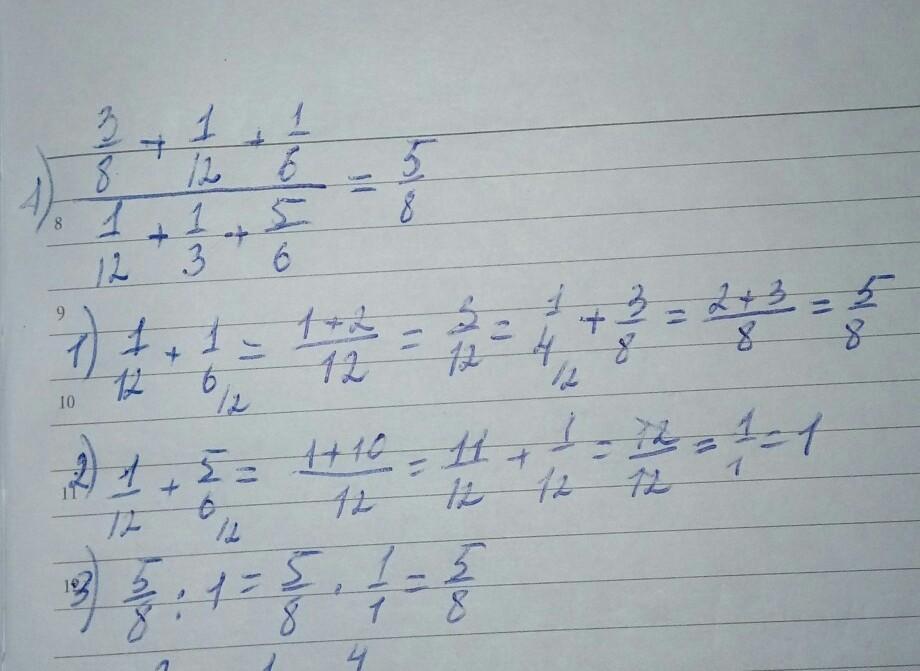 1) (3/8 + 1/12 + 1/6) / (1/12 + 1/3 + 5/6) = 5/8
8
9
1) 1/12 + 1/6 /12 = (1+2)/12 = 3/12 = 1/4 /12 + 3/8 = (2+3)/8 = 5/8
10
2) 1/12 + 5/6 /12 = (1+10)/12 = 11/12 + 1/12 = 12/12 = 1/1 = 1
11
3) 5/8 : 1 = 5/8 · 1/1 = 5/8